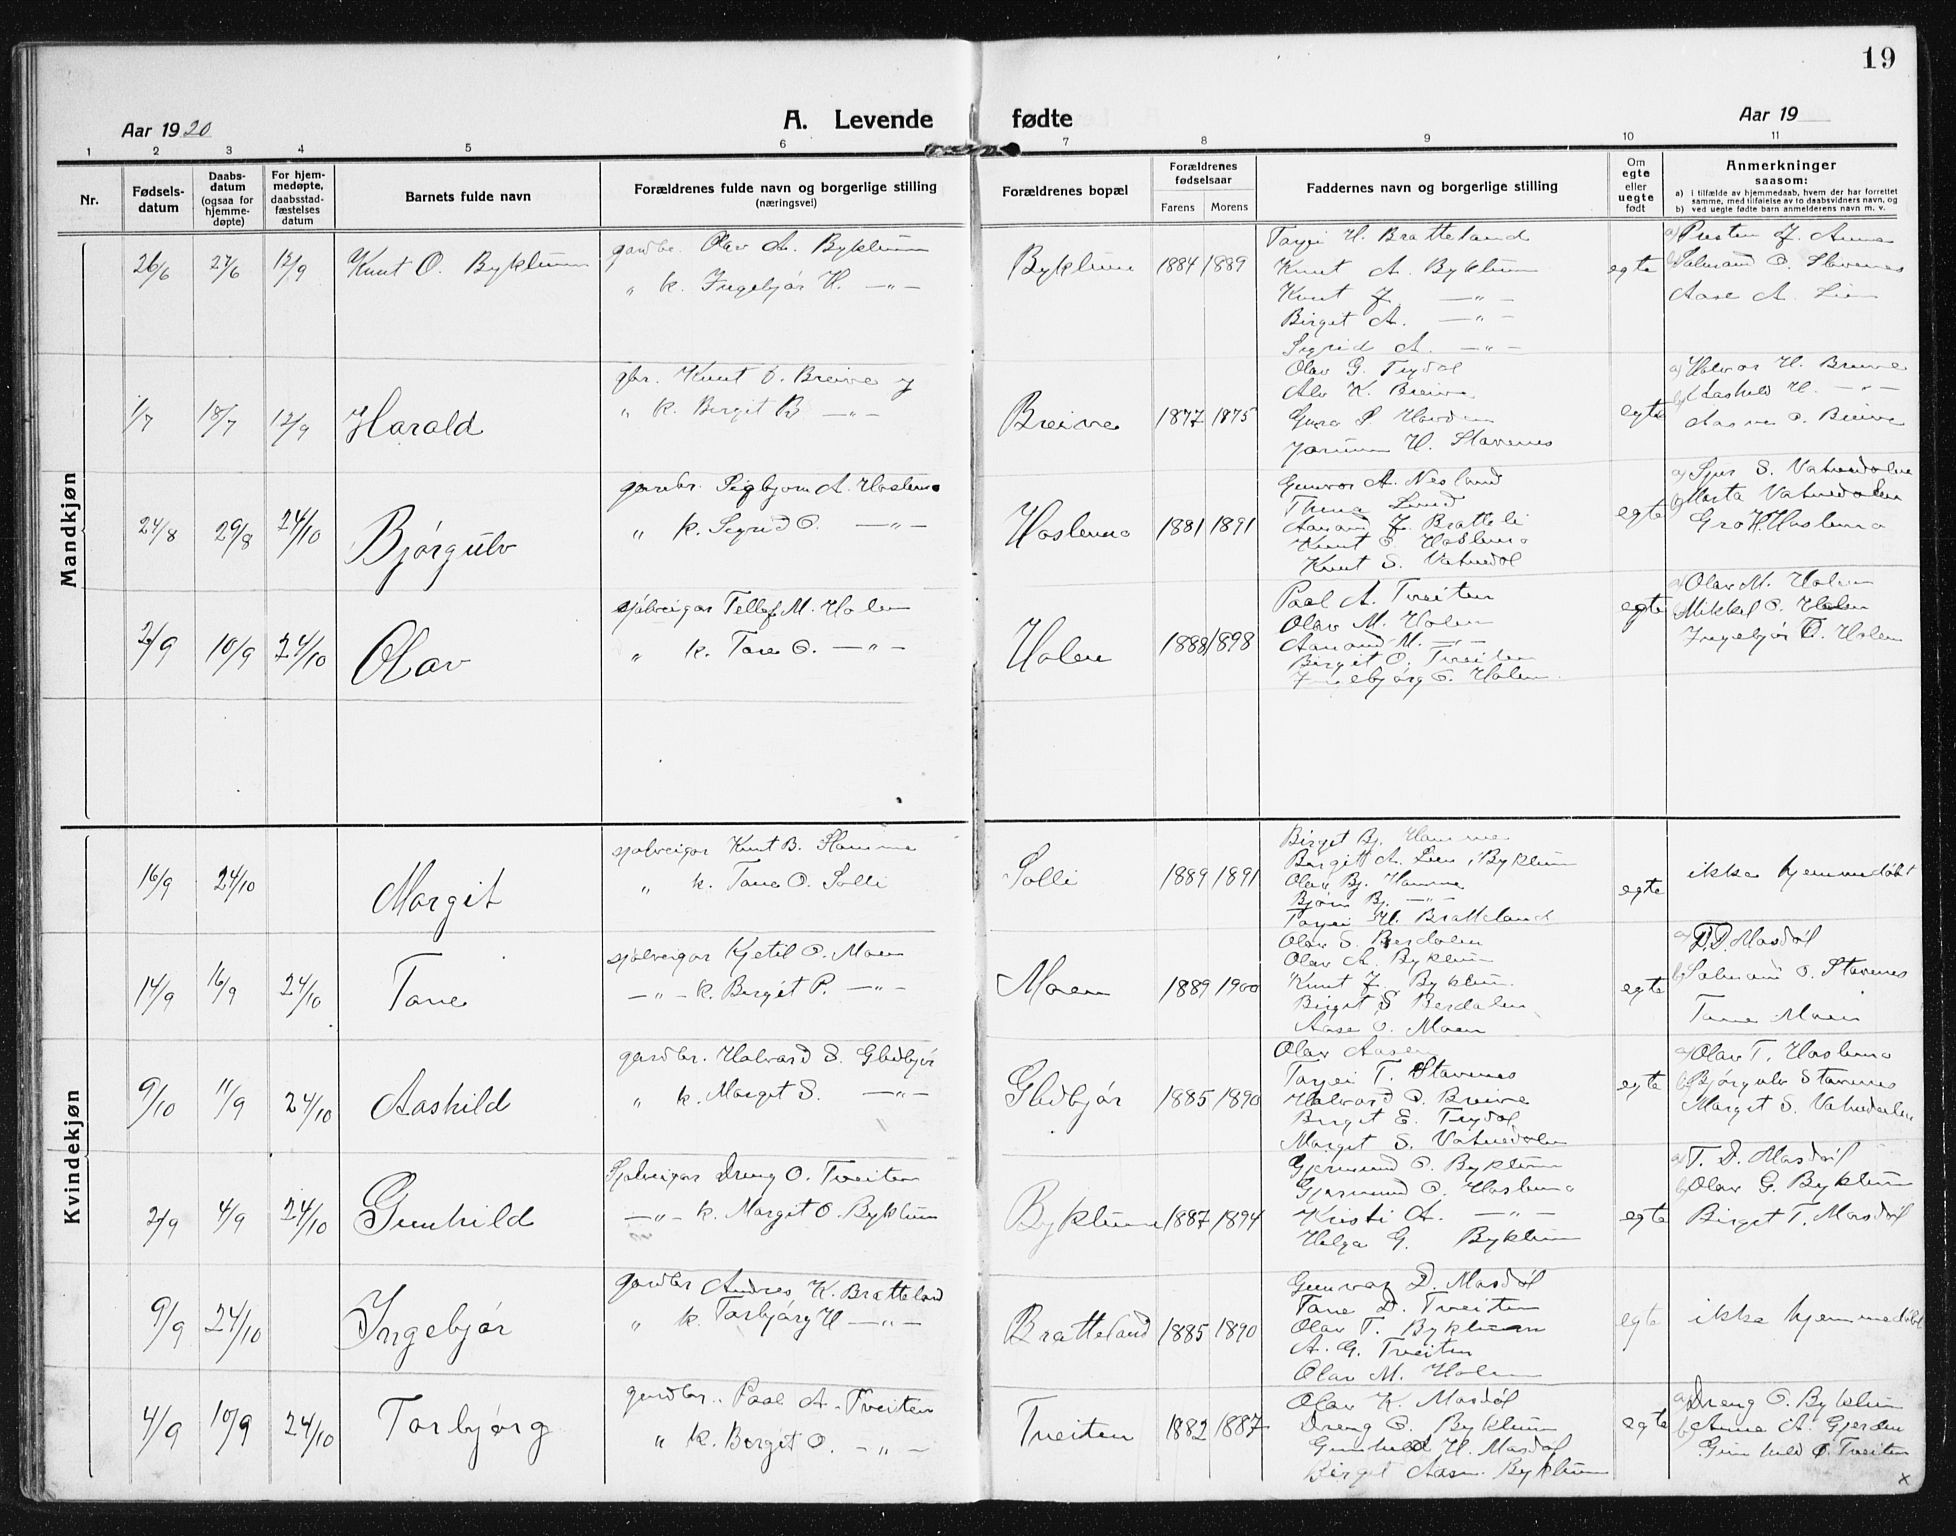 19
Aar 1920
A. Levende fødte
Aar 19
1 2 3 4 5 6 7 8 9 10 11
Nr.
Fødsels-
datum
Daabs-
datum
(ogsaa for
hjemme-
døpte)
For hjem-
medøpte,
daabsstad-
fæstelses
datum
Barnets fulde navn
Forældrenes fulde navn og borgerlige stilling
(næringsvei)
Forældrenes bopæl
Forældrenes
fødselsaar
Farens Morens
Faddernes navn og borgerlige stilling
Om
egte
eller
uegte
født
Anmerkninger
saasom:
a) i tilfælde av hjemmedaab, hvem der har forrettet
samme, med tilføielse av to daabsvidners navn, og
b) ved uegte fødte barn anmelderens navn m. v.
Mandkjøn
26/6 27/6 12/9 Knut O. Byklum
gardbr. Olav A. Byklum
" k. Ingebjør H. —"—
Byklum 1884 1889
Tarjei H. Bratteland
Knut A. Byklum
Knut J. —"—
Birgit A. —"—
Sigrid A. —"—
egte
a) Presten J.
b) Salmund O. Stavenes
Aase A. Lien
1/7 18/7 12/9 Harald
gbr. Knut O. Breive og
" k. Birgit B. —"—
Breive 1877 1875
Olav G. Trydal
Alv K. Breive
Jorunn H. Stavenes
egte
a) Halvor H. Breive
b) Aashild H. —"—
O. Breive
24/8 29/8 24/10 Bjørgulv
gardbr. Sigbjørn A. Hoslemo
" k. Sigrid O. —"—
Hoslemo 1881 1891
Gunvor A. Nesland
Thina Lund
Aanund J. Bratteli
Knut O. Hoslemo
Knut S. Vatnedal
egte
a) Sjur S. Vatnedalen
b) Marta Vatnedalen
Gro H. Hoslemo
2/9 10/9 24/10 Olav
sjølveigar Tellef M. Holen
" k. Tone O. —"—
Holen 1888 1898
Paal A. Tveiten
Olav M. Holen
Aanund M. —"—
Birgit O. Tveiten
Ingebjørg O. Holen
egte
a) Olav M. Holen
b) Mikkel O. Holen
Ingebjør O. Holen
Kvindekjøn
16/9 24/10 Margit
sjølveigar Knut B. Hamme
" k. Tone O. Solli
Solli 1889 1891
Birgit Bj. Hamme
Birgit A. Lien, Byklum
Olav Bj. Hamme
Bjørn Bj. —"—
Tarjei H. Bratteland
egte
ikke hjemmedøbt
14/9 16/9 24/10 Tone
sjølveigar Kjetil O. Moen
—"— k. Birgit P. —"—
Moen 1889 1900
Olav S. Berdalen
Olav A. Byklum
Knut J. Byklum
Birgit S. Berdalen
Aase O. Moen
egte
a) D. D. Mosdøl
b) Salmund O. Stavenes
Tone Moen
9/10 11/9 24/10 Aashild
gardbr. Halvard S. Glidbjør
" k. Margit S. —"—
Glidbjør 1885 1890
Olav Aasen
Tarjei T. Stavenes
Halvard O. Breive
Birgit E. Trydal
Margit S. Vatnedalen
egte
a) Olav T. Hoslemo
b) Bjørgulv Stavenes
Margit S. Vatnedalen
2/9 4/9 24/10 Gunhild
Sjølveigar Dreng O. Tveiten
—"— k. Margit O. Byklum
Byklum 1887 1894
Gjermund O. Byklum
Gjermund O. Hoslemo
Kristi A. —"—
Helga G. Byklum
egte
a) T. D. Mosdøl
b) Olav G. Byklum
Birgit T. Mosdøl
9/9 24/10 Ingebjør
gardbr. Andres K. Bratteland
" k. Torbjørg H —"—
Bratteland 1885 1890
Gunvor D. Mosdøl
Tone D. Tveiten
Olav T. Byklum
A. G. Tveiten
Olav M. Holen
egte
ikke hjemmedøbt
4/9 10/9 24/10 Torbjørg
gardbr. Paal A. Tveiten
" k. Birgit O. —"—
Tveiten 1882 1887
Olav K. Mosdøl
Dreng O. Byklum
Gunhild H. Mosdøl
Birgit Aasn. Byklum
egte
a) Dreng O. Byklum
b) Anne A. Gjerden
Gunhild O. Tveiten
x